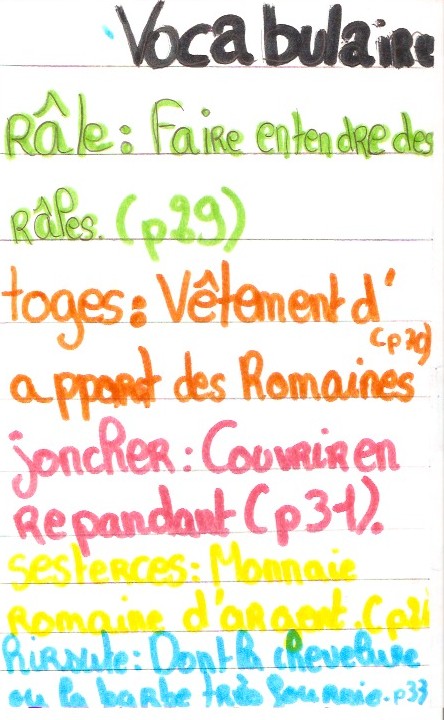 Vocabulaire
Râle : Faire entendre des
râles. (p29)
toges : Vêtement d'
(p30)
apparat des Romaines
joncher : Couvrir en
repandant (p31).
sesterces : Monnaie
romaine d'argent. (p21
hirsute : Dont la chevelure
ou la barbe très fournie. p33